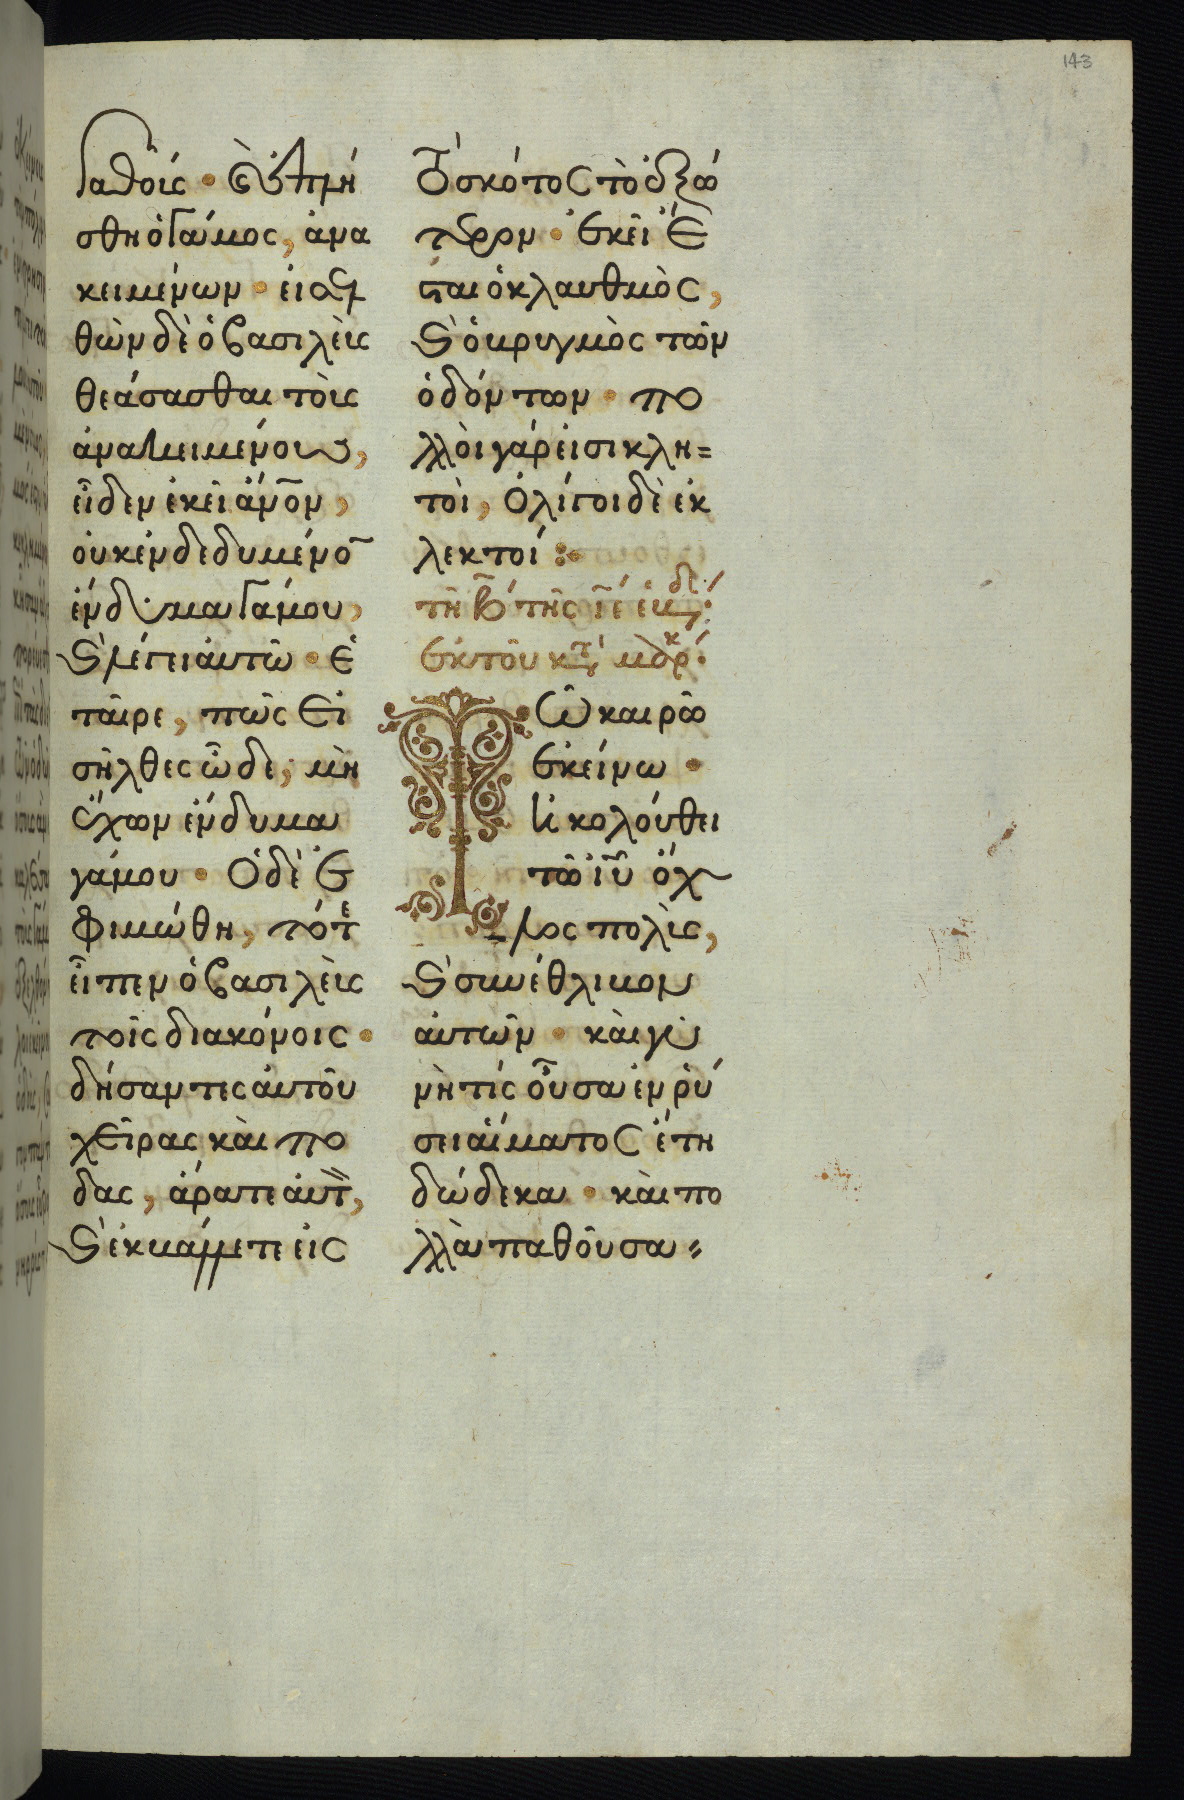 143
γαθοίς · ϗ ἐπλή
σθη ὁ γάμος, ἀνα
κειμένων · εἰσελ
θὼν δὲ ὁ βασιλεὺς
θεάσασθαι τοὺς
ἀνακειμένους,
εἶδεν ἐκεῖ ἄνον,
οὐκ ἐνδεδυμένο
ἔνδυμα γάμου,
ϗ λέγει αὐτῶ · ἑ
ταῖρε, πῶς εἰ
σῆλθες ὧδε, μὴ
ἔχων ἔνδυμα
γάμου · ὁ δὲ ἐ
φιμώθη, τότε
εἶπεν ὁ βασιλεὺς
τοῖς διακόνοις ·
δήσαντες αὐτοῦ
χεῖρας καὶ πο
δας, ἄρατε αὐτ,
ϗ ἐκβάλλετε εἰς
τὸ σκότος τὸ ἐξώ
τερον · ἐκεῖ ἔ
σται ὁ κλαυθμὸς,
ϗ ὁ βρυγμὸς τῶν
ὀδόντων · πο
λλοὶ γάρ εἰσι κλη=
τοὶ, ὀλίγοι δὲ ἐκ
λεκτοί :·
τῆ β τῆς ιε ἑβδ:
ἐκ τοῦ κτ μδρκ·
Τῶ καιρῶ
ἐκείνω ·
ἠκολούθει
τῶ ιυ ὄχ
λος πολὺς,
ϗ συνέθλιβον
αὐτῶν · καὶ γυ
νὴ τίς οὖσα ἐν ῥύ
σει αἵματος ἔτη
δώδεκα · καὶ πο
λλὰ παθοῦσα